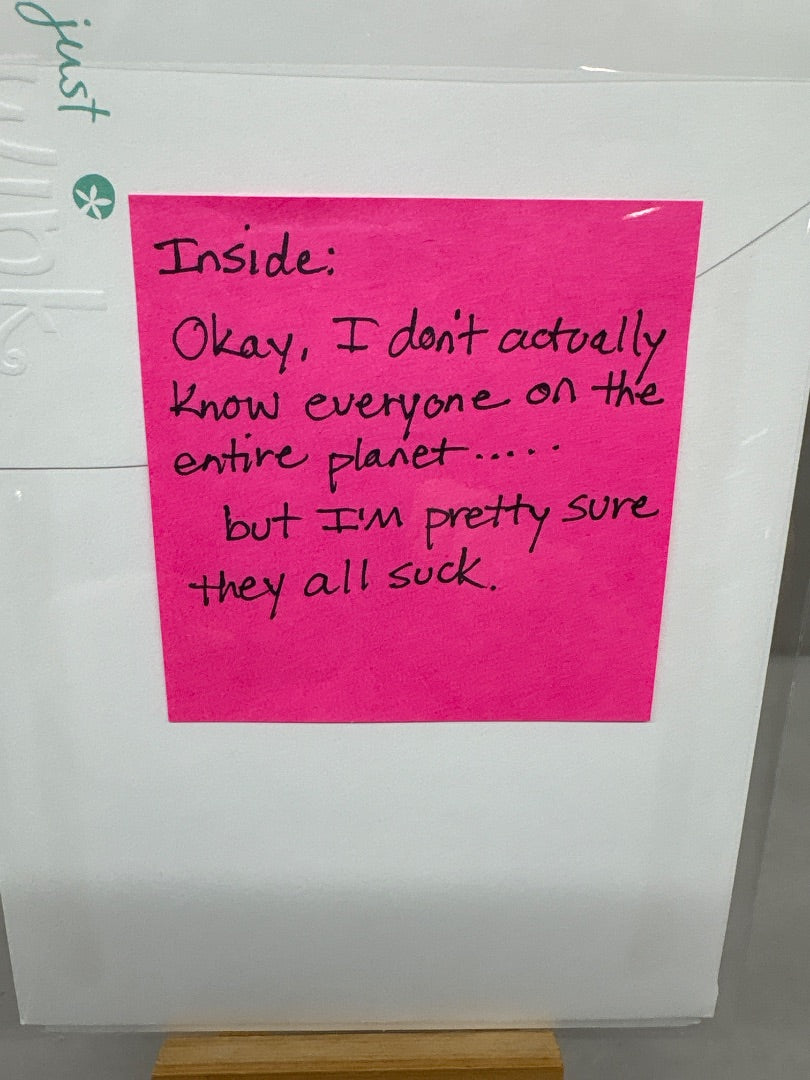 just
Inside:
Okay, I don't actually
know everyone on the
entire planet.....
but I'm pretty sure
they all suck.